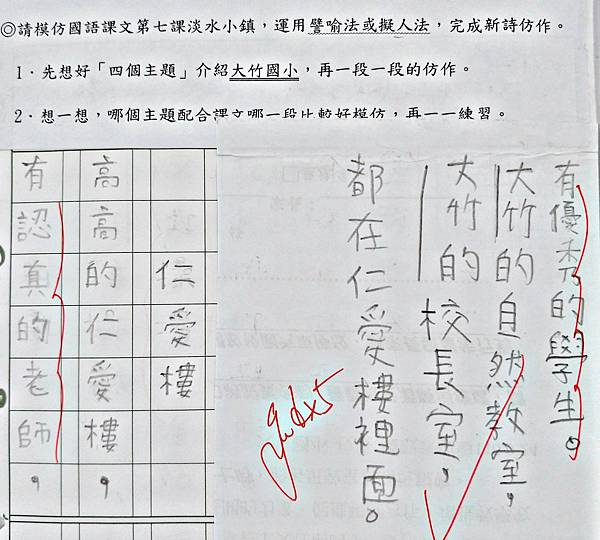 ◎請模仿國語課文第七課淡水小鎮，運用譬喻法或擬人法，完成新詩仿作。
1．先想好「四個主題」介紹大竹國小，再一段一段的仿作。
2．想一想，哪個主題配合課文哪一段比較好模仿，再一一練習。
仁愛樓
高高的仁愛樓，
有認真的老師，
有優秀的學生。
大竹的自然教室，
大竹的校長室，
都在仁愛樓裡面。